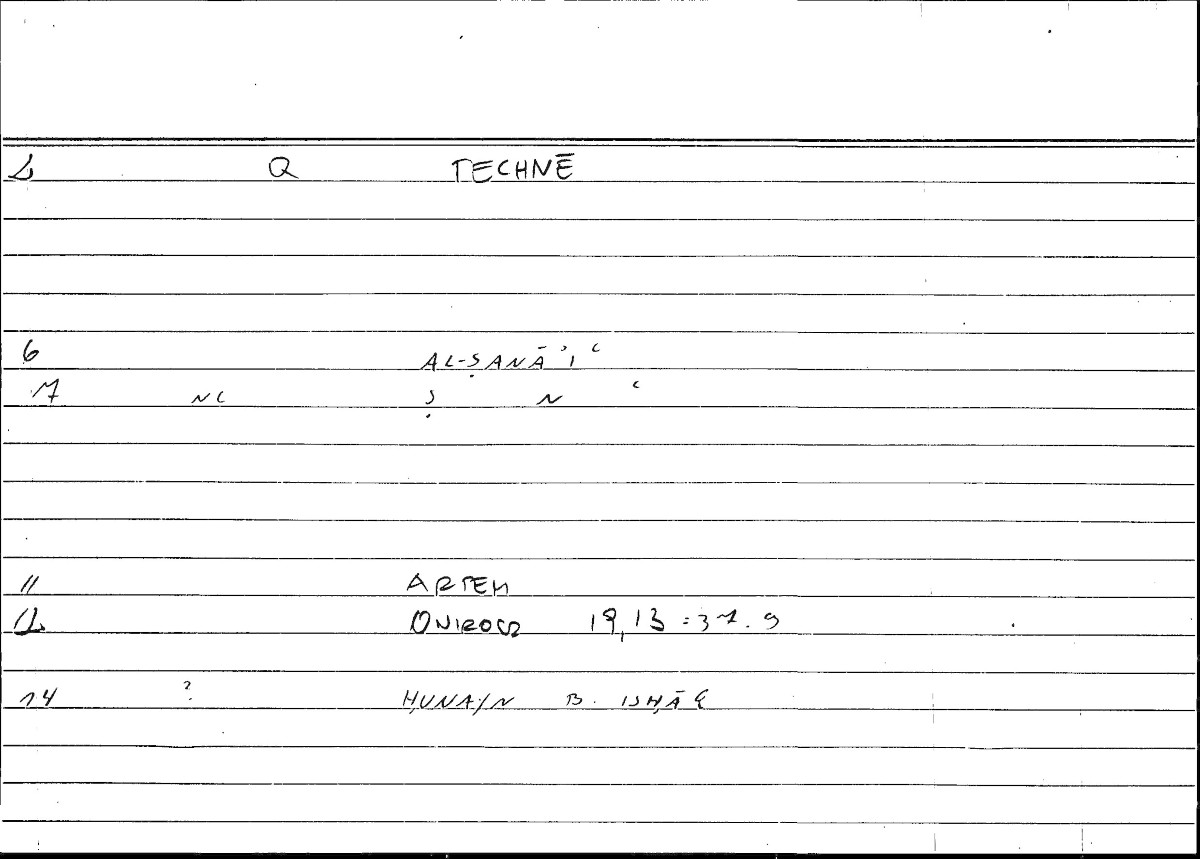 2 Q TECHNĒ
6 AL-ṢANĀʾIʿ
7 NC Ṣ N ʿ
11 ARTEM
12 ONIROCR 19,13 : 31.9
14 ? ḤUNAYN B. ISḤĀQ